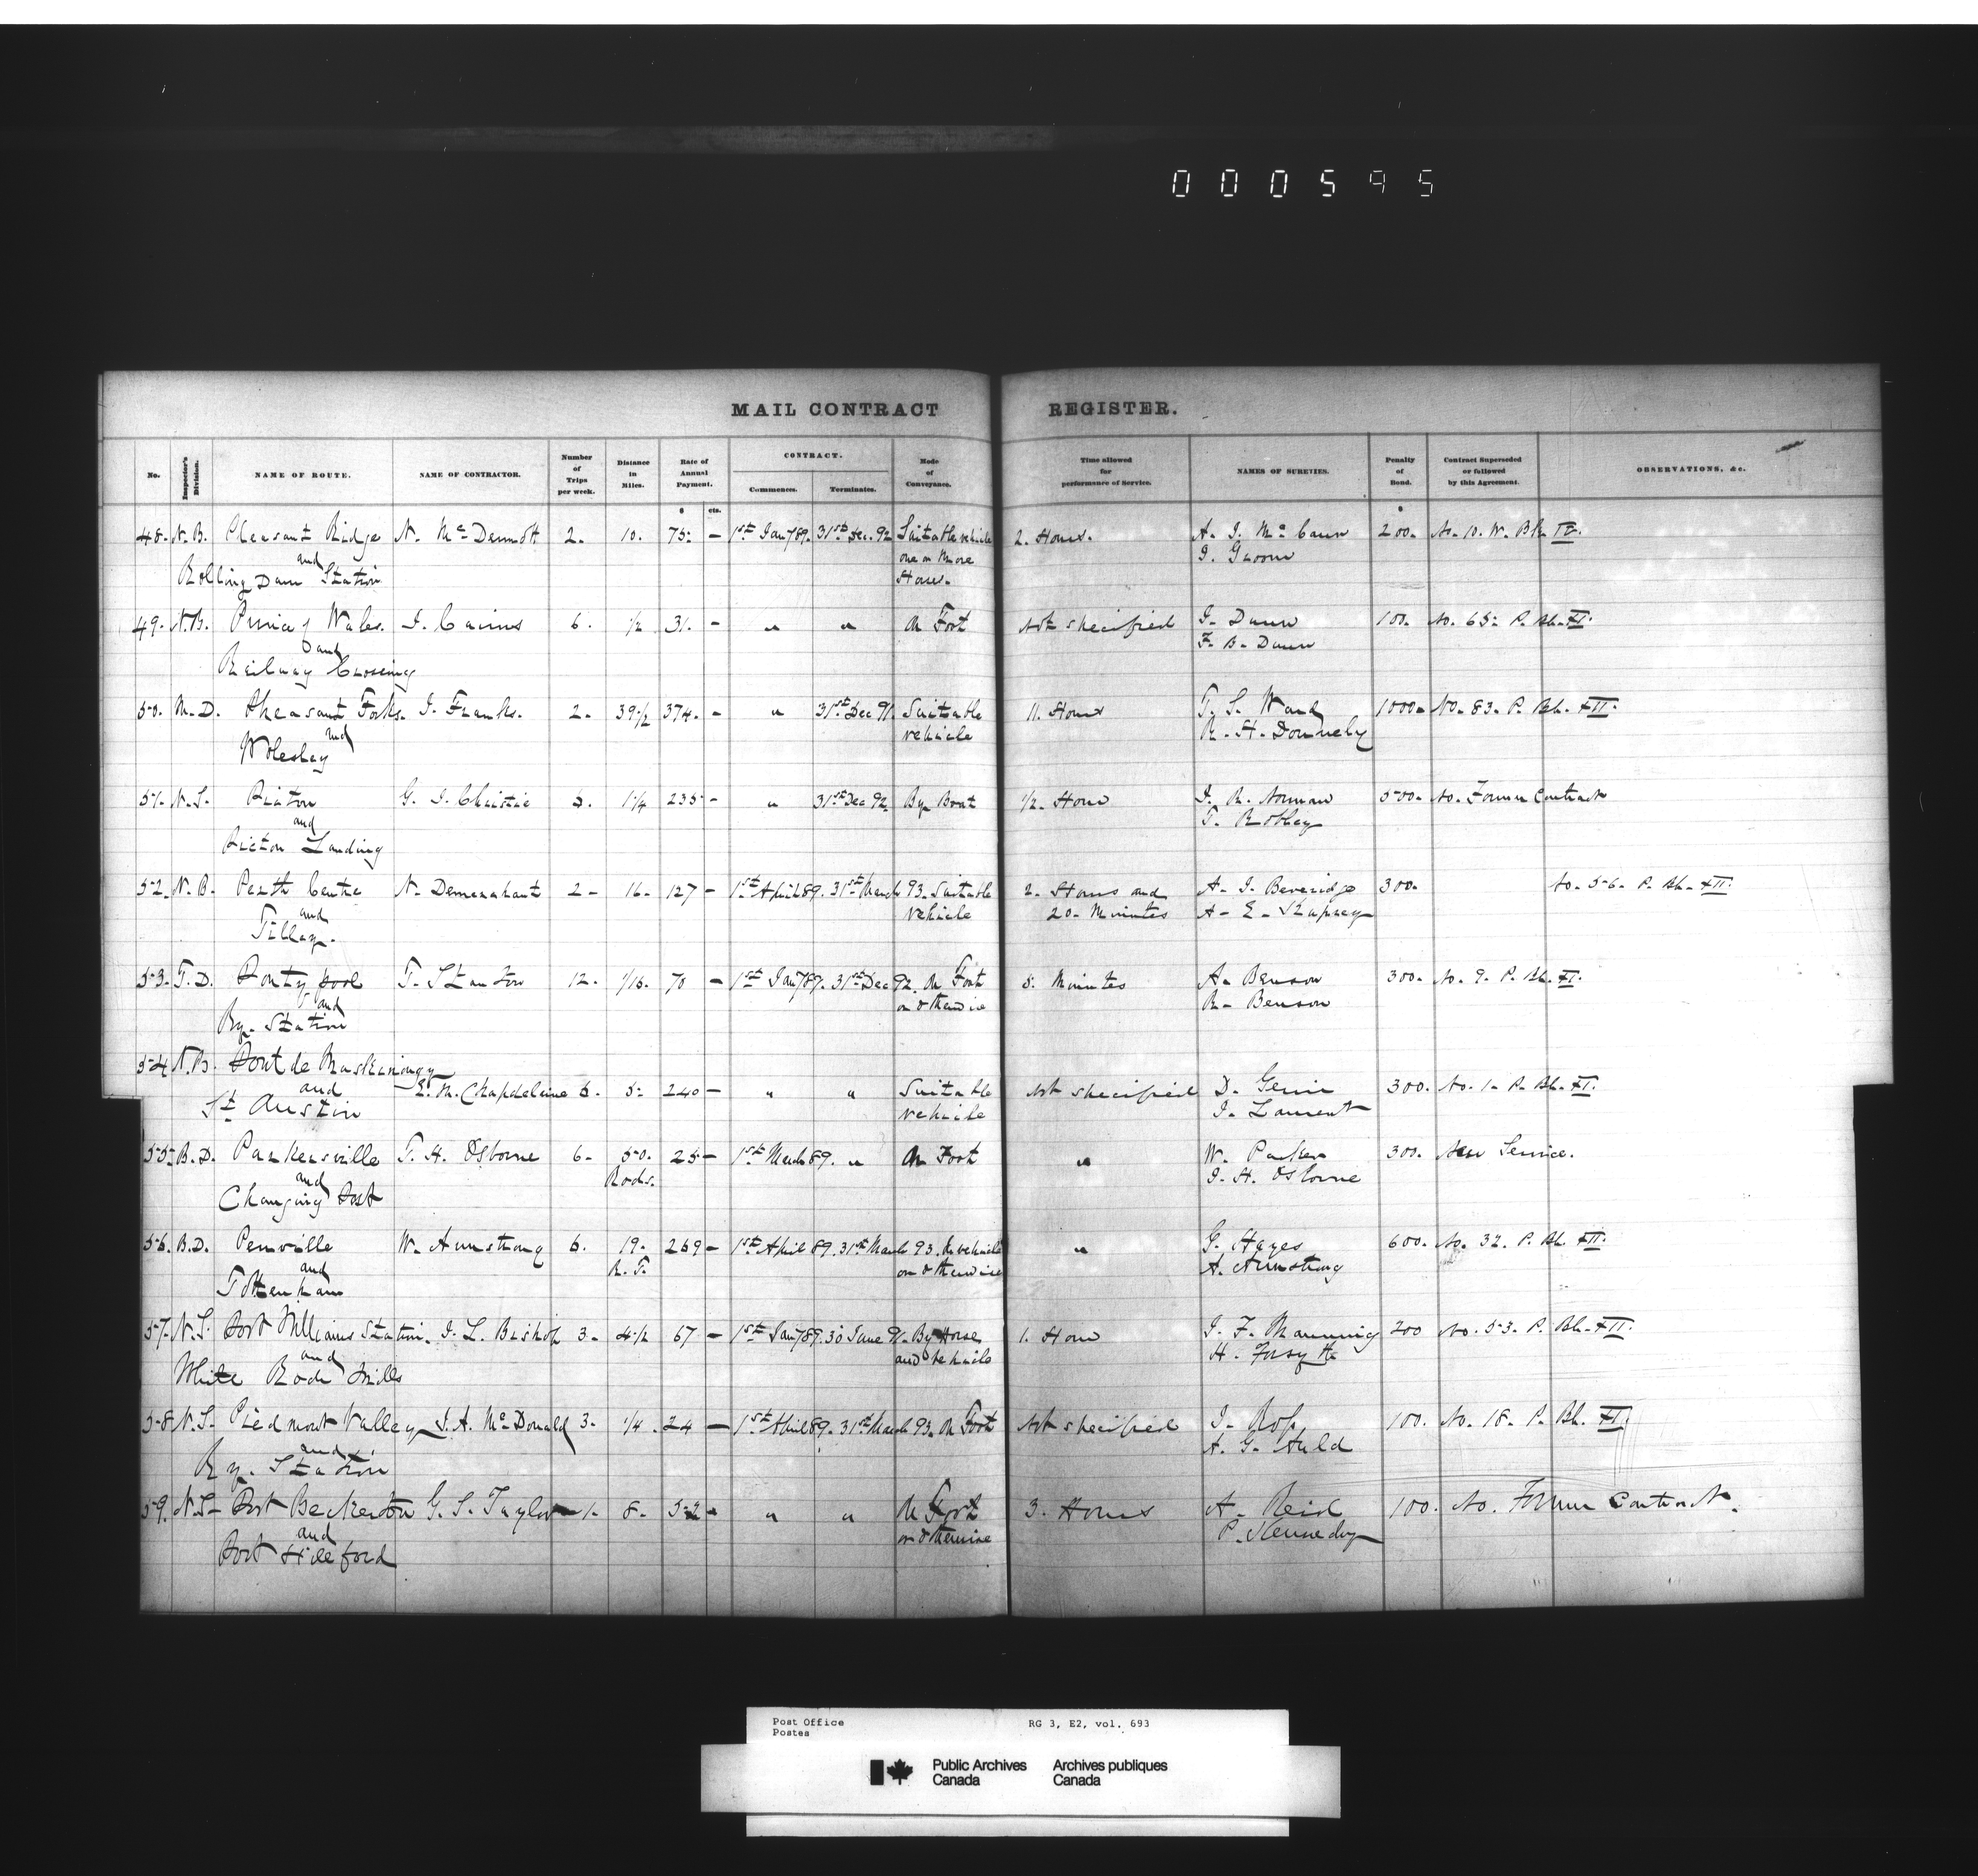 000595
MAIL CONTRACT REGISTER.
No. Inspector's Division. NAME OF ROUTE. NAME OF CONTRACTOR. Number of Trips per week. Distance in Miles. Rate of Annual Payment. CONTRACT. Commences. Terminates. Mode of Conveyance. Time allowed for performance of Service. NAMES OF SURETIES. Penalty of Bond. Contract Superseded or followed by this Agreement. OBSERVATIONS, &c.
$ cts. $
48. N.B. Pleasant Ridge N. McDermott 2. 10. 75. – 1st Jany 89. 31st Dec. 92 Suitable vehicle 2. Hours. A. J. McCann 200. No. 10. W. Bk. IV.
and one or more J. Groom
Rolling Dam Station Horses.
49. N.B. Prince of Wales. J. Cairns 6. 1/2 31. – " " On Foot Not specified J. Dunn 100. No. 65. P. Bk. XI.
and F. B. Dunn
Railway Crossing
50. M.D. Pheasant Forks. J. Franks. 2. 39 1/2 374. – " 31st Dec 91. Suitable 11. Hours T. S. Ward 1000. No. 83. P. Bk. XII.
and vehicle R. H. Donnely
Wolesley
51. N.S. Picton G. J. Christie 3. 1 1/4 235 – " 31st Dec 92. By Boat 1/2. Hour J. R. Norman 500. No. Former Contract
and T. Robley
Picton Landing
52. N.B. Perth Centre N. Demerchant 2 – 16. 127 – 1st April 89. 31st March 93. Suitable 2. Hours and A. J. Beveridge 300. No. 56. P. Bk. XII.
and vehicle 20. Minutes A. E.
Tilley.
53. T.D. Pontypool T. Stanton 12. 1/16. 70 – 1st Jany 89. 31st Dec 92. On Foot 5. Minutes A. Benson 300. No. 9. P. Bk. XI.
and or otherwise R. Benson
Ry. Station
54 N.B. Pont de Maskinonge
and E. M. Chapdelaine 6. 5. 240 – " " Suitable Not specified D. 300. No. 1. P. Bk. XI.
St Austin vehicle J. Laurent
55. B.D. Parkersville T. H. Osborne 6. 50. 25 – 1st March 89. " On Foot " W. Parker 300. New Service.
and Rods. J. H. Osborne
Changing Post
56. B.D. Penville W. Armstrong 6. 19. 269 – 1st April 89. 31st March 93. In vehicle " G. Hayes 600. No. 32. P. Bk. XII.
and R. T. or otherwise A. Armstrong
Tottenham
57. N.S. Port Williams Station. J. L. Bishop 3. 4 1/2 67 – 1st Jany 89. 30 June 91. By Horse 1. Hour J. F. Manning 200 No. 53. P. Bk. XII.
and and vehicle H. Forsythe
White Rock Mills
58 N.S. Piedmont Valley J. A. McDonald 3. 1/4. 24 – 1st April 89. 31st March 93. On Foot Not specified J. Ross 100. No. 18. P. Bk. XI.
and A. G. Auld
Ry. Station
59. N.S. Port Beckerton G. S. Taylor 1. 8. 52 – " " On Foot 3. Hours A. Reid 100. No. Former Contract.
and or otherwise P. Kennedy
Port Hilford
Post Office RG 3, E2, vol. 693
Postes
Public Archives Archives publiques
Canada Canada